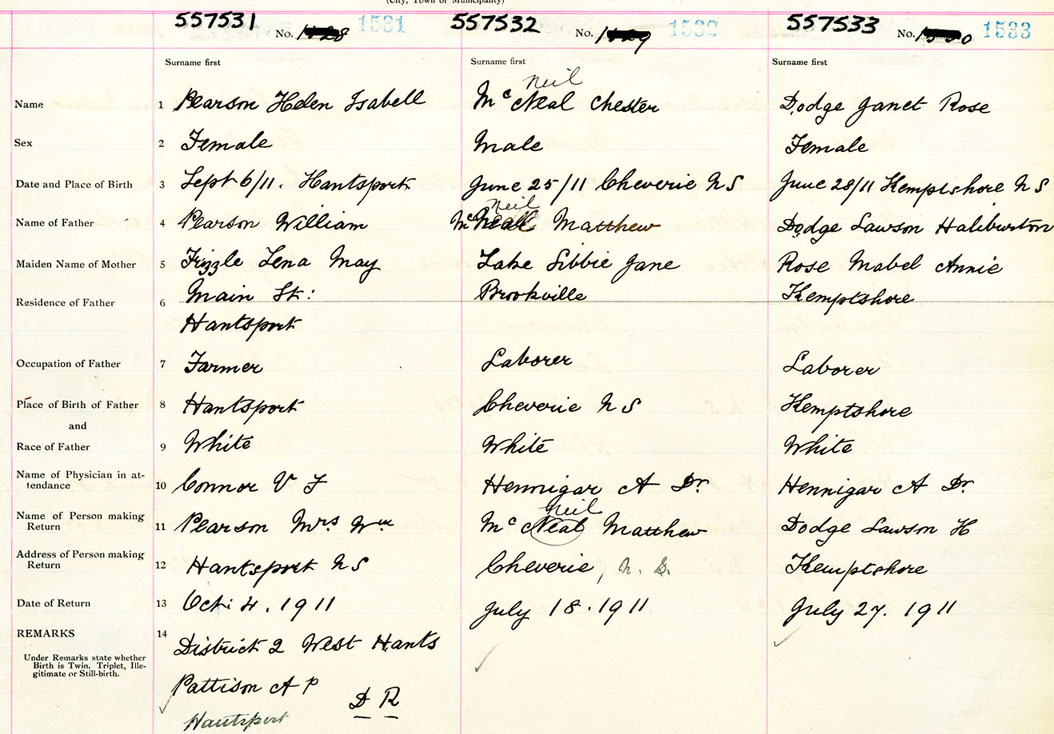 (City, Town or Municipality)
557531 No. 1581 557532 No. 1582 557533 No. 1583
Surname first Surname first Surname first
Neil
Name 1 Pearson Helen Isabell McNeal Chester Dodge Janet Rose
Sex 2 Female Male Female
Date and Place of Birth 3 Sept 6/11. Hantsport June 25/11 Cheverie N S June 28/11 Kemptshore N S
Neil
Name of Father 4 Pearson William McNeal Matthew Dodge Lawson Haliburton
Maiden Name of Mother 5 Fizzle Lena May Lake Libbie Jane Rose Mabel Annie
Residence of Father 6 Main St: Brookville Kemptshore
Hantsport
Occupation of Father 7 Farmer Laborer Laborer
Place of Birth of Father 8 Hantsport Cheverie N S Kemptshore
and
Race of Father 9 White White White
Name of Physician in at-
tendance 10 Connor V F Hennigar A Dr Hennigar A Dr.
Neil
Name of Person making
Return 11 Pearson Mrs Wm McNeal Matthew Dodge Lawson H
Address of Person making
Return 12 Hantsport N S Cheverie, N. S. Kemptshore
Date of Return 13 Oct. 4. 1911 July 18. 1911 July 27. 1911
REMARKS 14 District 2 West Hants
Under Remarks state whether
Birth is Twin, Triplet, Ille-
gitimate or Still-birth.
Pattison A P D R
Hantsport